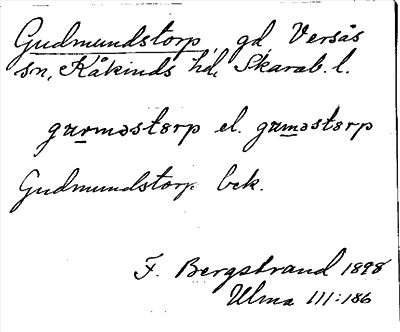 Gudmundstorp, gd, Versås
sn, Kåkinds hd, Skarab. l.
gurməstørp el. guməstørp
Gudmundstorp bek.
F. Bergstrand 1898
Ulma 111:186